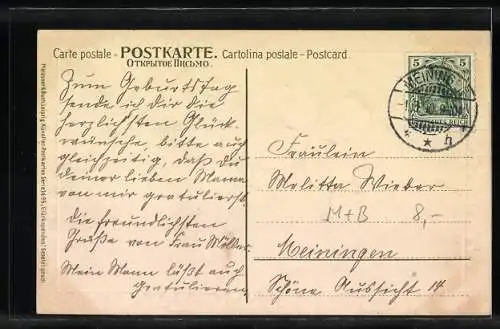 Carte postale - POSTKARTE. Cartolina postale - Postcard
ОТКРЫТОЕ ПИСЬМО.
Zum Geburtstag
sende ich Dir die
herzlichsten Glück-
wünsche, bitte auch
gleichzeitig, daß Du
deiner lieben Mama
von mir gratulierst.
Die freundlichsten
Grüße von Frau
Mein Mann läßt auch
gratulieren
5 5
MEININGEN
Fräulein
Melitta Wieber
M+B 8,-
Meiningen
Schöne Aussicht 14